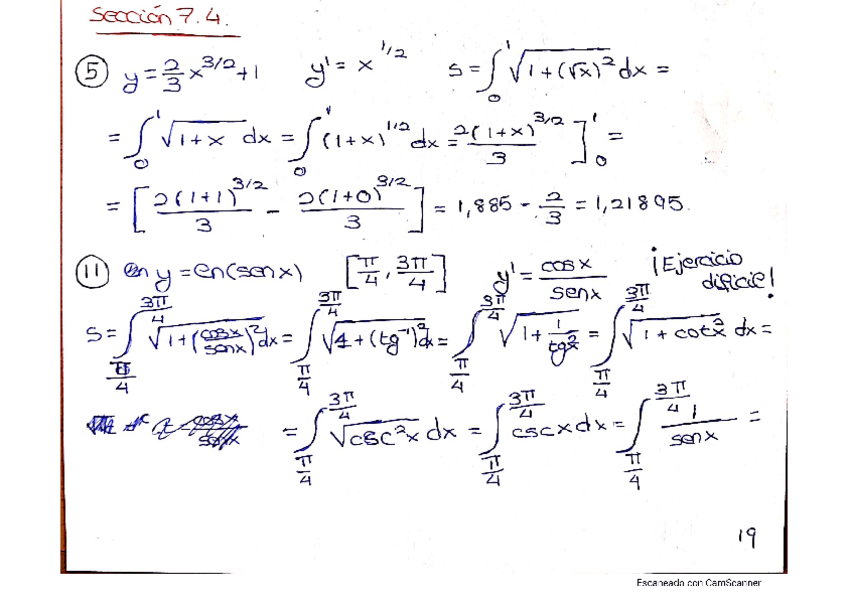 Sección 7.4.
⑤ y = 2/3 x^3/2 + 1 y' = x^1/2 s = ∫₀¹ √(1+(√x)²) dx =
= ∫₀¹ √(1+x) dx = ∫₀¹ (1+x)^1/2 dx = 2(1+x)^3/2 / 3 ]₀¹ =
= [ 2(1+1)^3/2 / 3 - 2(1+0)^3/2 / 3 ] = 1,885 - 2/3 = 1,21895.
⑪ y = ln(senx) [π/4, 3π/4] y' = cosx/senx ¡Ejercicio dificil!
s = ∫_π/4^3π/4 √(1+(cosx/senx)²) dx = ∫_π/4^3π/4 √(1+(tg⁻¹)²) dx = ∫_π/4^3π/4 √(1+ 1/tg²x) = ∫_π/4^3π/4 √(1+cot²x) dx =
= ∫_π/4^3π/4 √(csc²x) dx = ∫_π/4^3π/4 cscx dx = ∫_π/4^3π/4 1/senx =
19
Escaneado con CamScanner